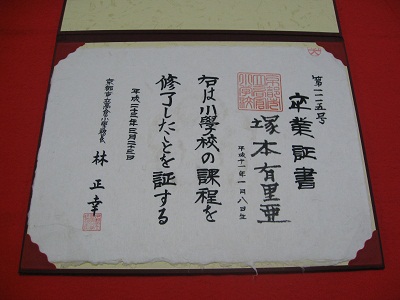 第一一五号
卒業証書
塚本有里亜
平成十一年一月八日生
右は小學校の課程を
修了したことを証する
平成二十三年三月二十三日
林正幸